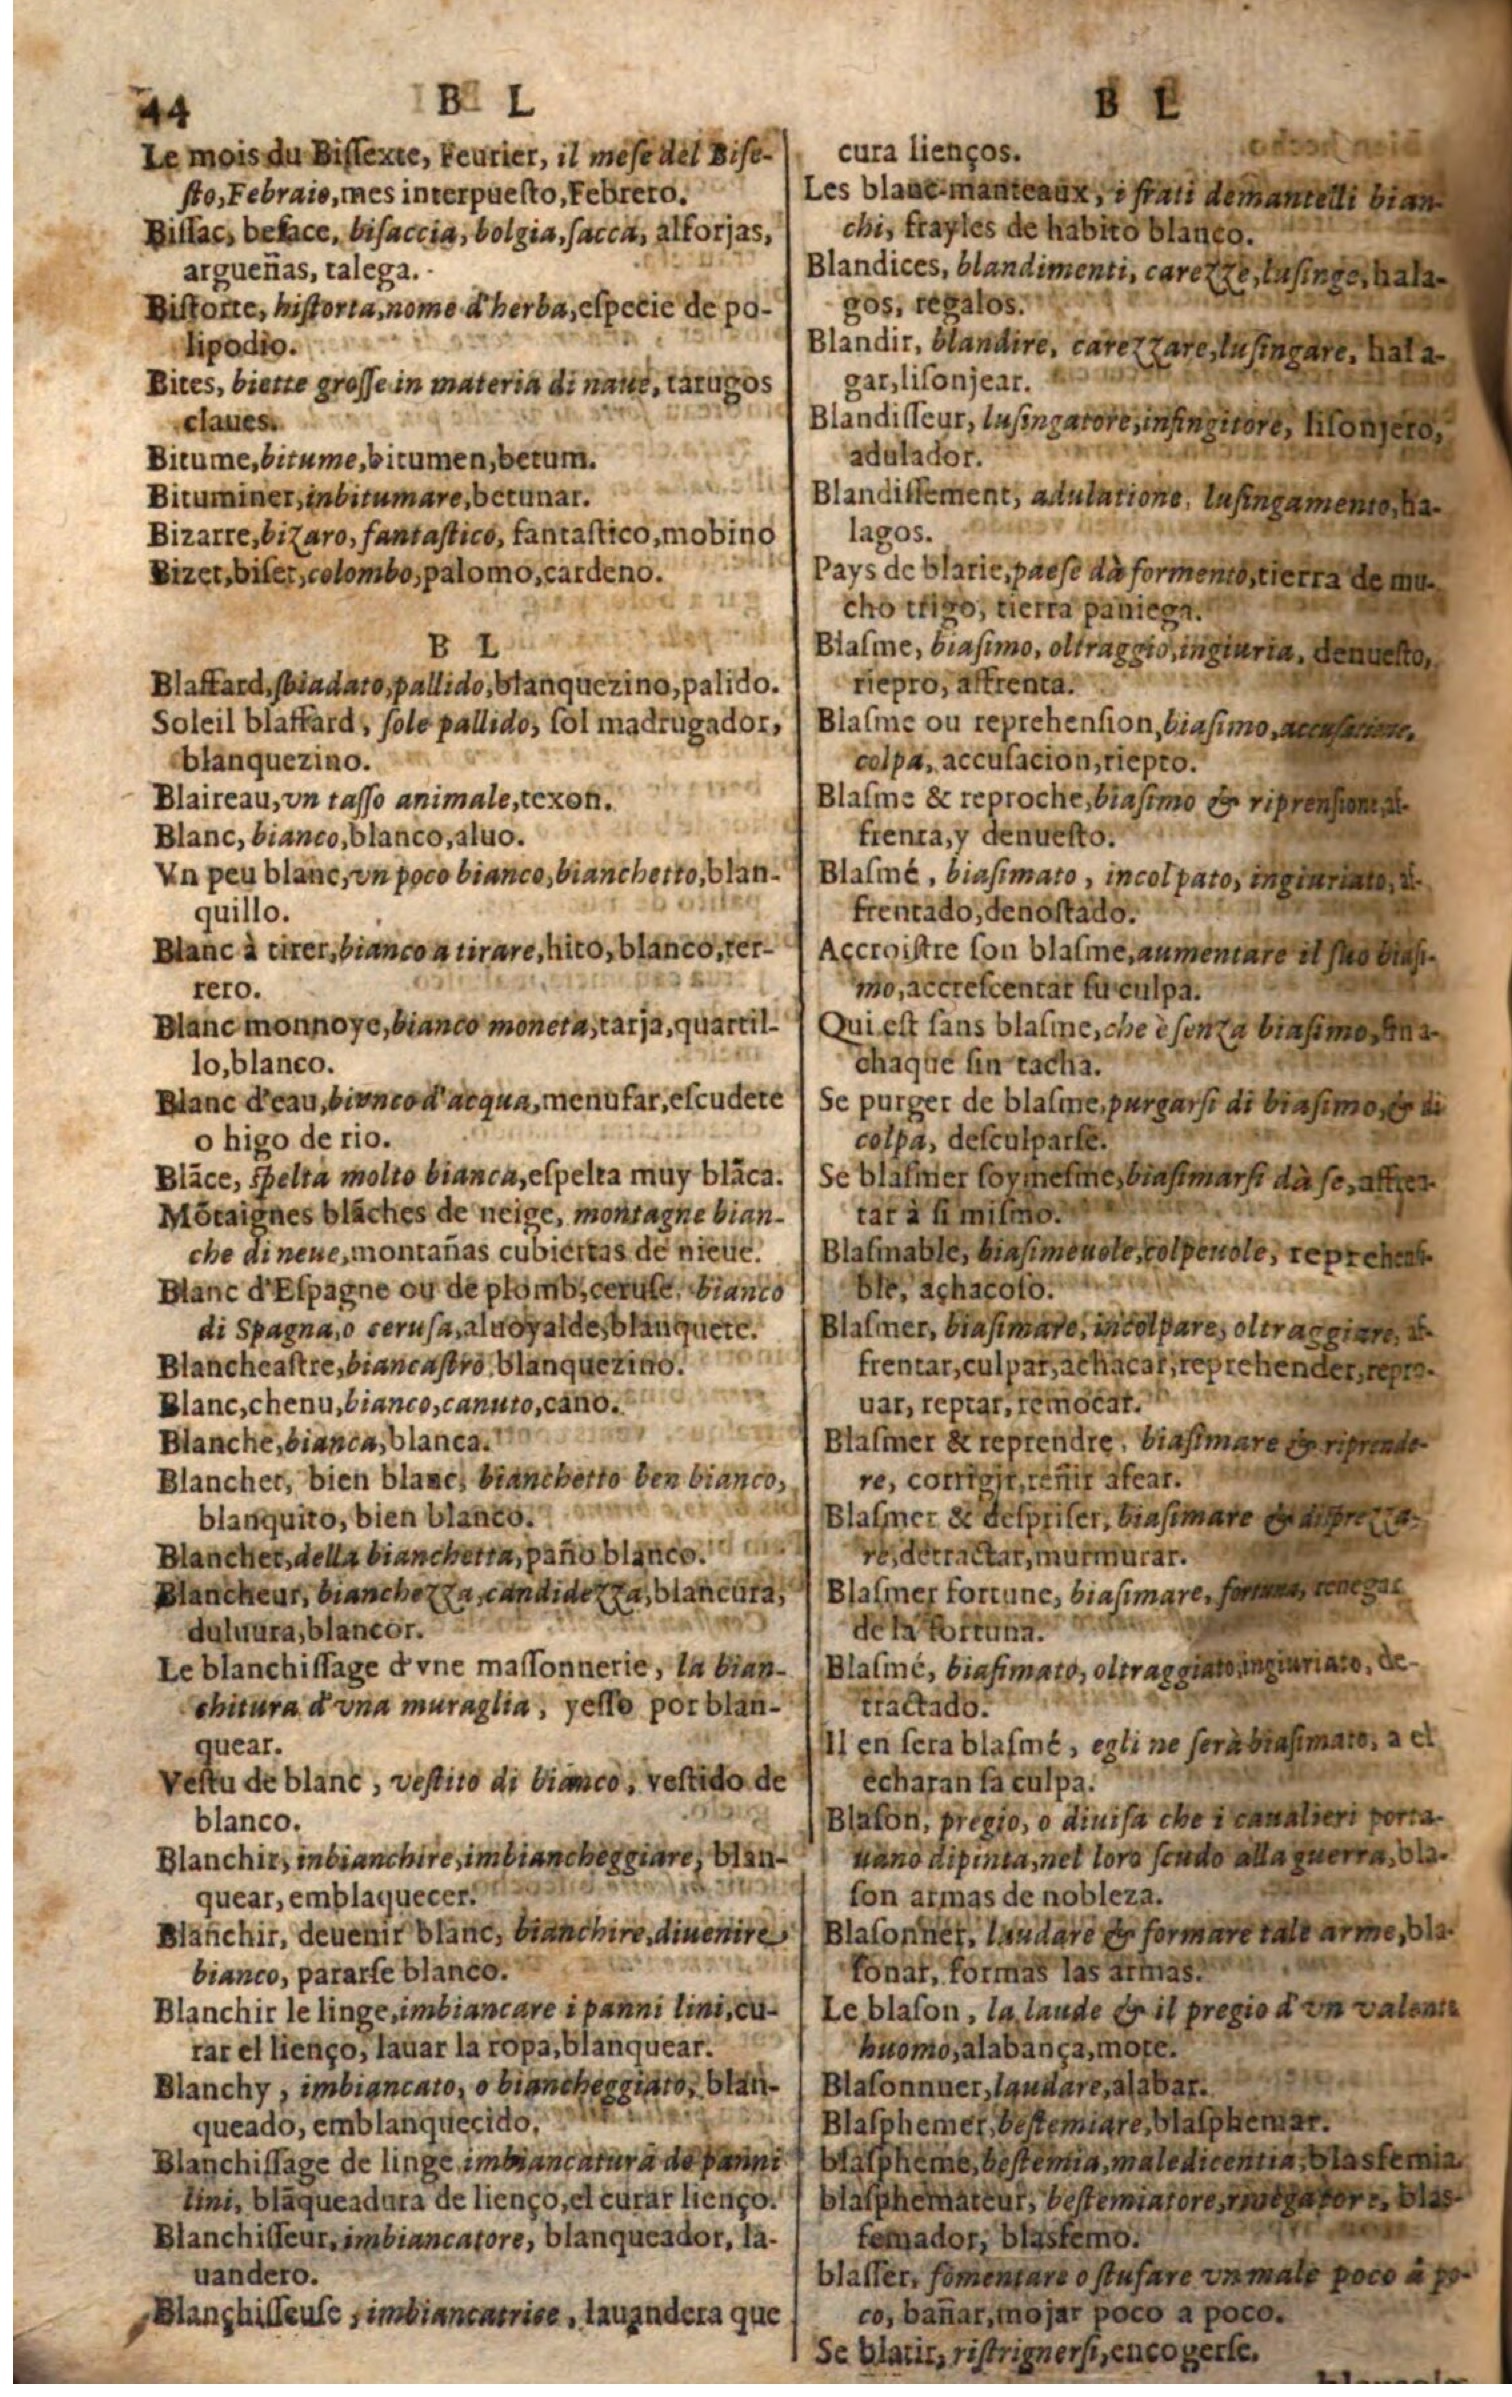 44 B L
Le mois du Bissexte, Feurier, il mese del Bise-
sto, Febraio, mes interpuesto, Febrero.
Bissac, besace, bisaccia, bolgia, sacca, alforjas,
argueñas, talega.
Bistorte, historta, nome d'herba, especie de po-
lipodio.
Bites, biette grosse in materia di naue, tarugos
claues.
Bitume, bitume, bitumen, betum.
Bituminer, inbitumare, betunar.
Bizarre, bizaro, fantastico, fantastico, mobino
Bizet, biset, colombo, palomo, cardeno.
B L
Blaffard, sbiadato, pallido, blanquezino, palido.
Soleil blaffard, sole pallido, sol madrugador,
blanquezino.
Blaireau, vn tasso animale, texon.
Blanc, bianco, blanco, aluo.
Vn peu blanc, vn poco bianco, bianchetto, blan-
quillo.
Blanc à tirer, bianco a tirare, hito, blanco, ter-
rero.
Blanc monnoye, bianco moneta, tarja, quartil-
lo, blanco.
Blanc d'eau, bivnco d'acqua, menufar, escudete
o higo de rio.
Blãce, spelta molto bianca, espelta muy blãca.
Mõtaignes blãches de neige, montagne bian-
che di neue, montañas cubiertas de nieue.
Blanc d'Espagne ou de plomb, ceruse, bianco
di Spagna, o cerusa, aluoyalde, blanquete.
Blancheastre, biancastro, blanquezino.
Blanc, chenu, bianco, canuto, cano.
Blanche, bianca, blanca.
Blanchet, bien blanc, bianchetto ben bianco,
blanquito, bien blanco.
Blanchet, della bianchetta, paño blanco.
Blancheur, bianchezza, candidezza, blancura,
duluura, blancor.
Le blanchissage d'vne massonnerie, la bian-
chitura d'vna muraglia, yesso por blan-
quear.
Vestu de blanc, vestito di bianco, vestido de
blanco.
Blanchir, inbianchire, imbiancheggiare, blan-
quear, emblaquecer.
Blanchir, deuenir blanc, bianchire, diuenire
bianco, pararse blanco.
Blanchir le linge, imbiancare i panni lini, cu-
rar el lienço, lauar la ropa, blanquear.
Blanchy, imbiancato, o biancheggiato, blan-
queado, emblanquecido.
Blanchissage de linge, imbiancatura de panni
lini, blãqueadura de lienço, el curar lienço.
Blanchisseur, imbiancatore, blanqueador, la-
uandero.
Blançhisseuse, imbiancatrice, lauandera que
B L
cura lienços.
Les blanc-manteaux, i frati de mantelli bian-
chi, frayles de habito blanco.
Blandices, blandimenti, carezze, lusinge, hala-
gos, regalos.
Blandir, blandire, carezzare, lusingare, hala-
gar, lisonjear.
Blandisseur, lusingatore, infingitore, lisonjero,
adulador.
Blandissement, adulatione, lusingamento, ha-
lagos.
Pays de blarie, paese dà formento, tierra de mu-
cho trigo, tierra paniega.
Blasme, biasimo, oltraggio, ingiuria, denuesto,
riepro, affrenta.
Blasme ou reprehension, biasimo, accusatione,
colpa, accusacion, riepto.
Blasme & reproche, biasimo & riprensione, af-
frenta, y denuesto.
Blasmé, biasimato, incolpato, ingiuriato, af-
frentado, denostado.
Accroistre son blasme, aumentare il suo biasi-
mo, accrescentar su culpa.
Qui est sans blasme, che è senza biasimo, sin a-
chaque sin tacha.
Se purger de blasme, purgarsi di biasimo, & di
colpa, desculparse.
Se blasmer soymesme, biasimarsi dà se, affren-
tar à si mismo.
Blasmable, biasimeuole, colpeuole, reprehensi-
ble, achacoso.
Blasmer, biasimare, incolpare, oltraggiare, af-
frentar, culpar, achacar, reprehender, repro-
uar, reptar, remocar.
Blasmer & reprendre, biasimare & riprende-
re, corrigir, reñir afear.
Blasmer & despriser, biasimare & disprezza-
re, detractar, murmurar.
Blasmer fortune, biasimare, fortuna, renegar
de la fortuna.
Blasmé, biasimato, oltraggiato, ingiuriato, de-
tractado.
Il en sera blasmé, egli ne serà biasimato, a el
echaran la culpa.
Blason, pregio, o diuisa che i caualieri porta-
uano dipinta, nel loro scudo alla guerra, bla-
son armas de nobleza.
Blasonner, laudare & formare tale arme, bla-
sonar, formas las armas.
Le blason, la laude & il pregio d'vn valente
huomo, alabança, mote.
Blasonnuer, laudare, alabar.
Blasphemer, bestemiare, blasphemar.
blaspheme, bestemia, maledicentia, blasfemia
blasphemateur, bestemiatore, rinegatore, blas-
femador, blasfemo.
blasser, fomentare o stufare vn male poco à po-
co, bañar, mojar poco a poco.
Se blatir, ristrignersi, encogerse.